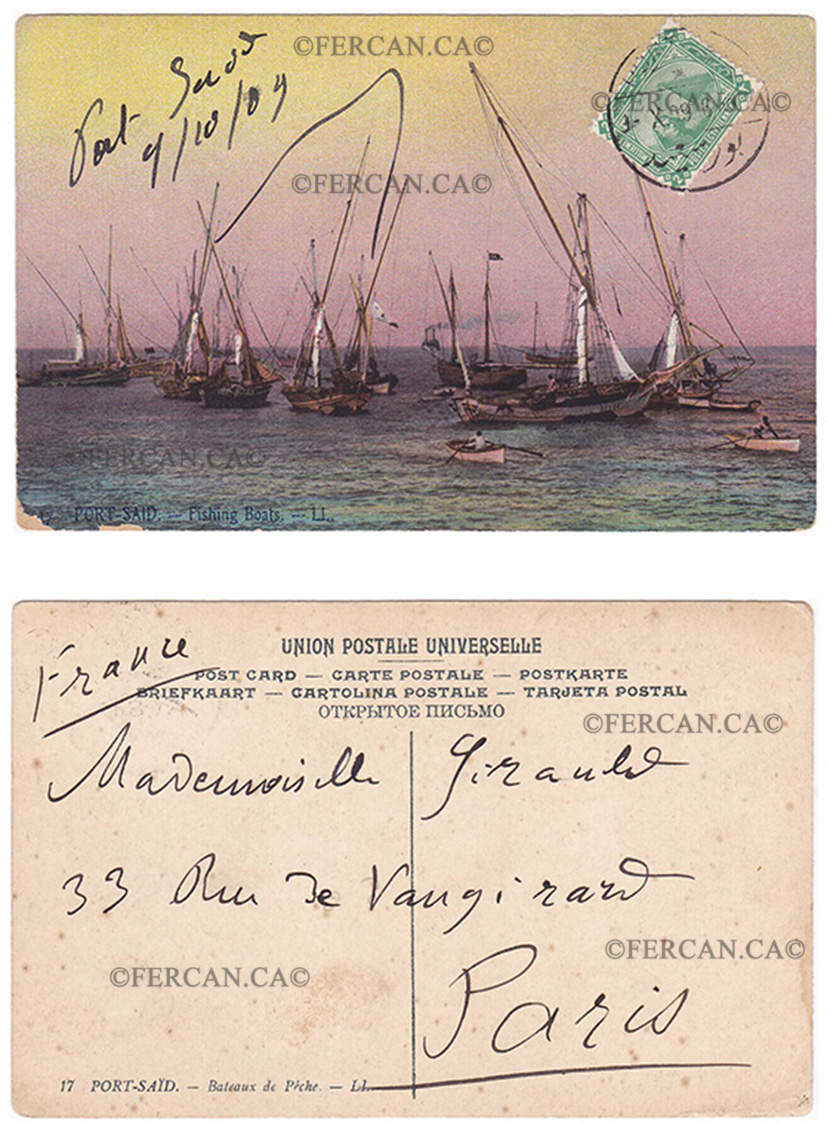 ©FERCAN.CA©
Port-Said
9/10/09
©FERCAN.CA©
©FERCAN.CA©
©FERCAN.CA©
17 PORT-SAID. — Fishing Boats. — LL.
France
UNION POSTALE UNIVERSELLE
POST CARD — CARTE POSTALE — POSTKARTE
BRIEFKAART — CARTOLINA POSTALE — TARJETA POSTAL
ОТКРЫТОЕ ПИСЬМО
©FERCAN.CA©
Mademoiselle Girault
33 Rue de Vaugirard
©FERCAN.CA©
©FERCAN.CA©
Paris
17 PORT-SAÏD. — Bateaux de Pêche. — LL.